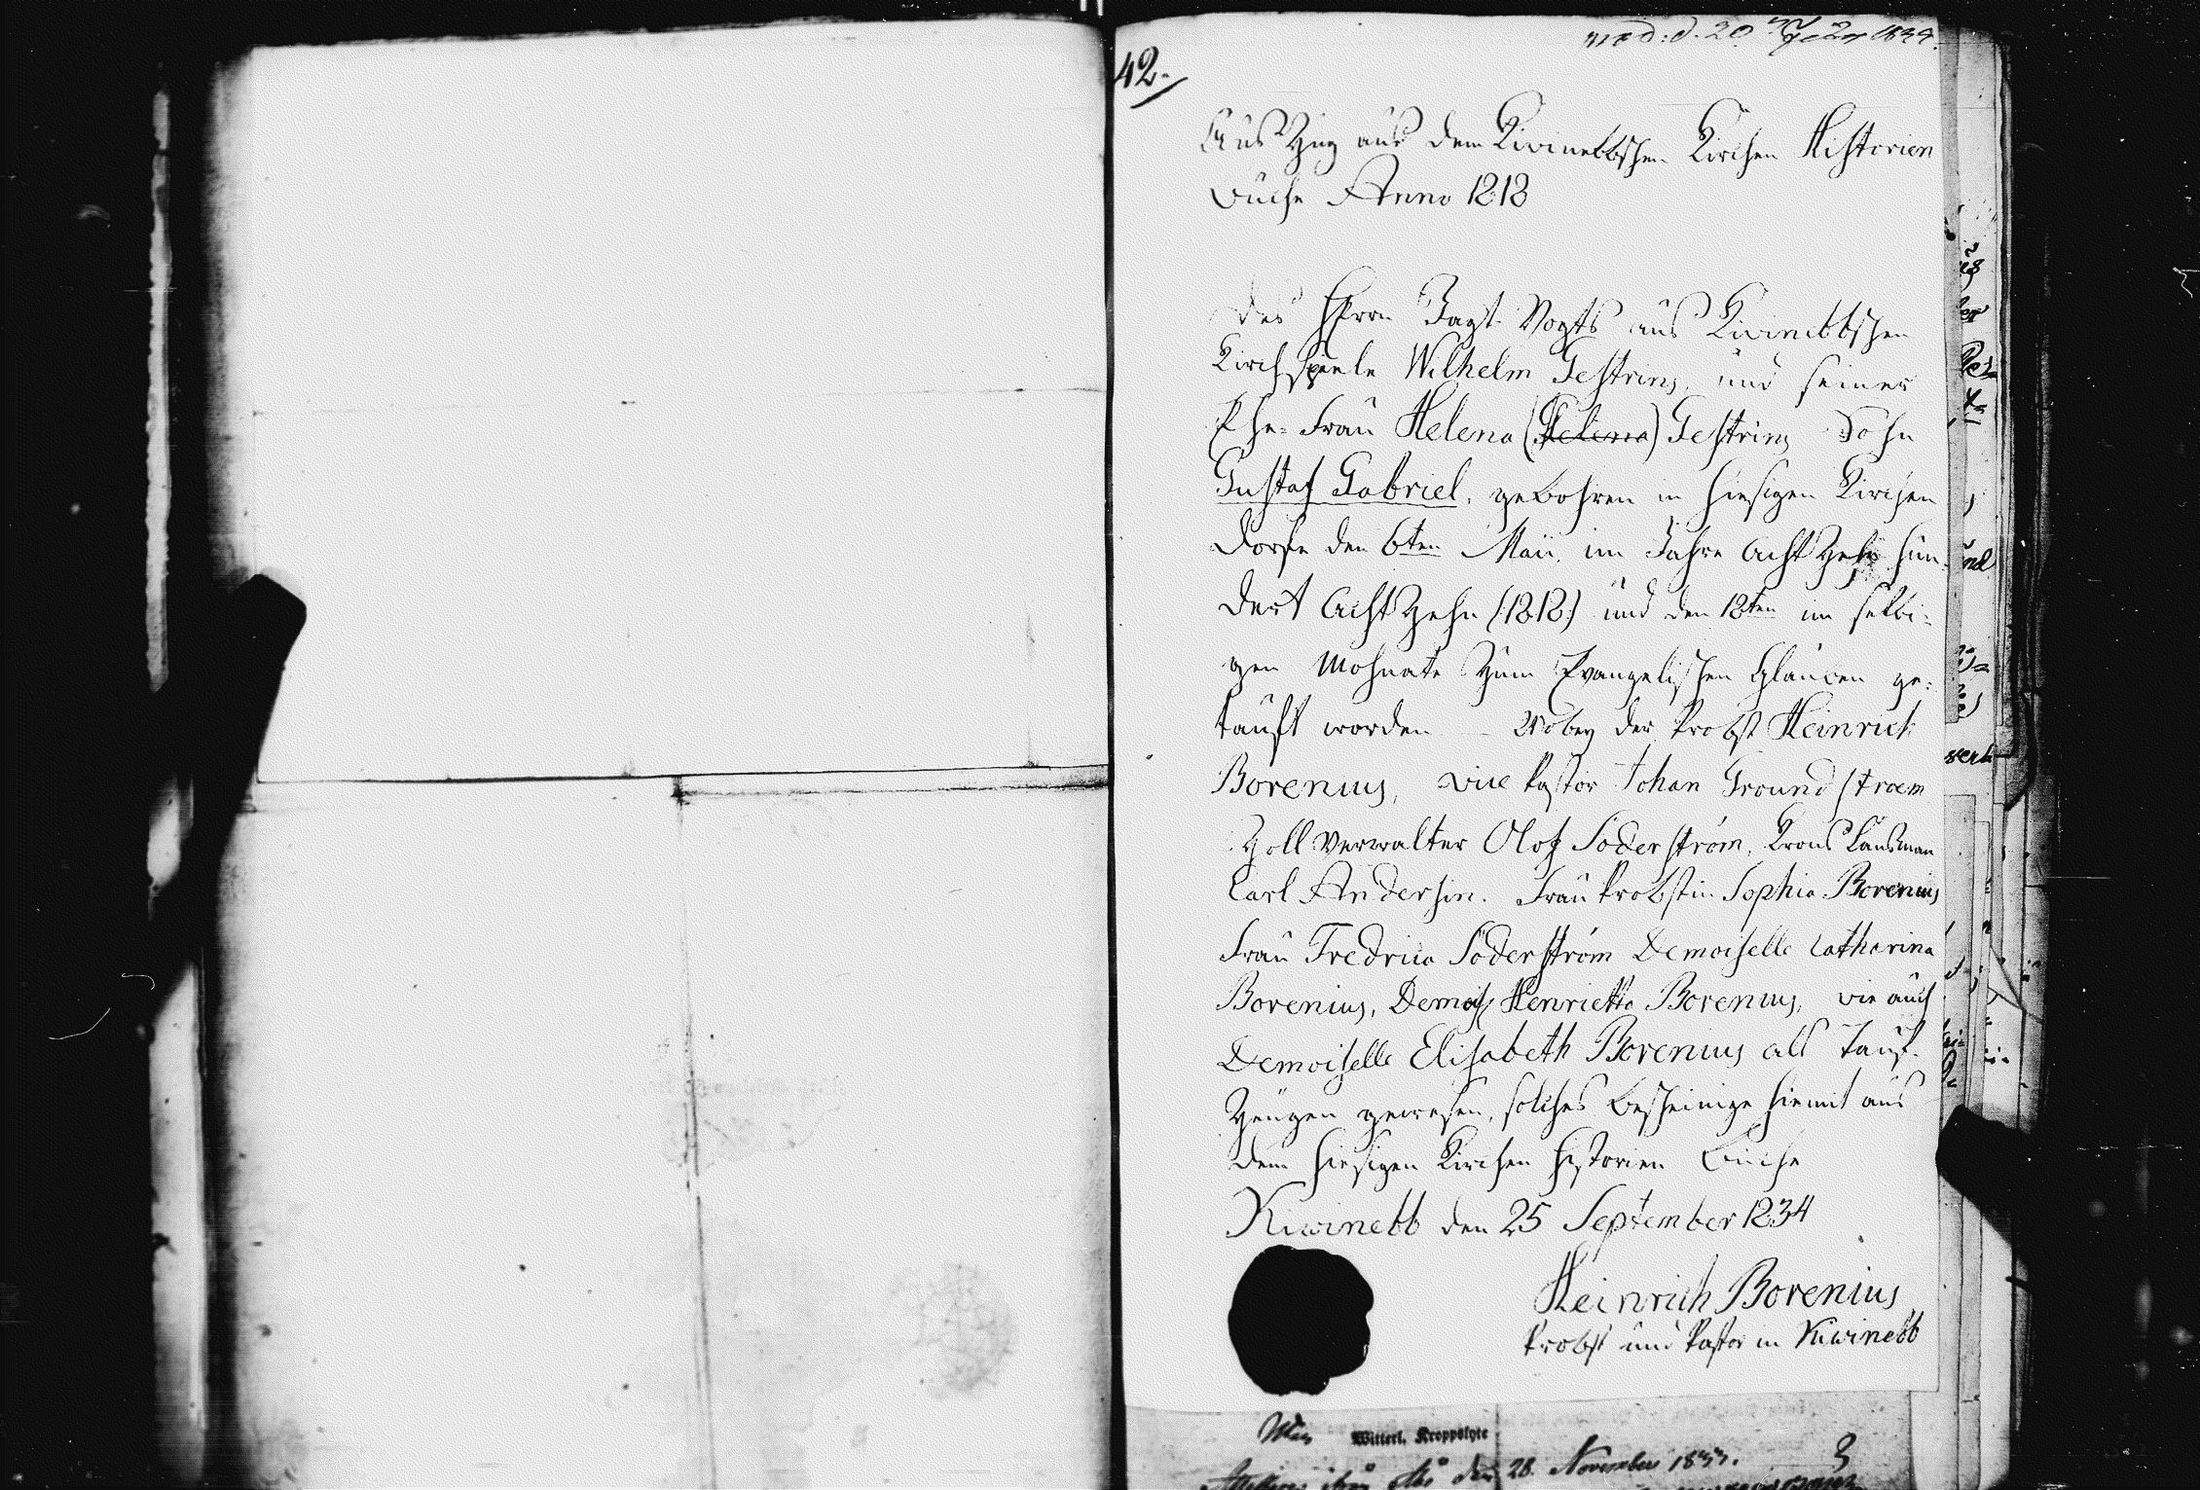 42.
Aus Zug aus dem Kivinebbschen Kirchen Historien
Buche Anno 1818
Des Herrn Jagt Vogts aus Kivinebbschen
Kirchspiele Wilhelm Gestrin, und seiner
Ehe=Frau Helena (Helena) Gestrin Sohn
Gustaf Gabriel, gebohren in hiesigen Kirchen
Dorfe den 6ten Maii, im Jahre Acht Zehn hun-
dert Acht Zehn (:1818:) und den 18ten im selbi-
gen Mohnate Zum Evangelischen Glauben ge-
tauft worden – Wobey der Probst Heinrich
Borenius, vice Pastor Johan Groundstroem
Zoll Verwalter Olof Söderström, Krons Länsman
Carl Andersin. Frau Probstin Sophia Borenius
Frau Fredrica Söderström Demoiselle Catharina
Borenius, Demois. Henrietta Borenius, wie auch
Demoiselle Elisabeth Borenius als Tauf-
Zeugen gewesen, solches bescheinige hiemit aus
dem hiesigen Kirchen Historien Buche
Kiwinebb den 25 September 1834
Heinrich Borenius
Probst und Pastor in Kiwinebb
Witterl. Kroppslyte
den 28. November 1833.